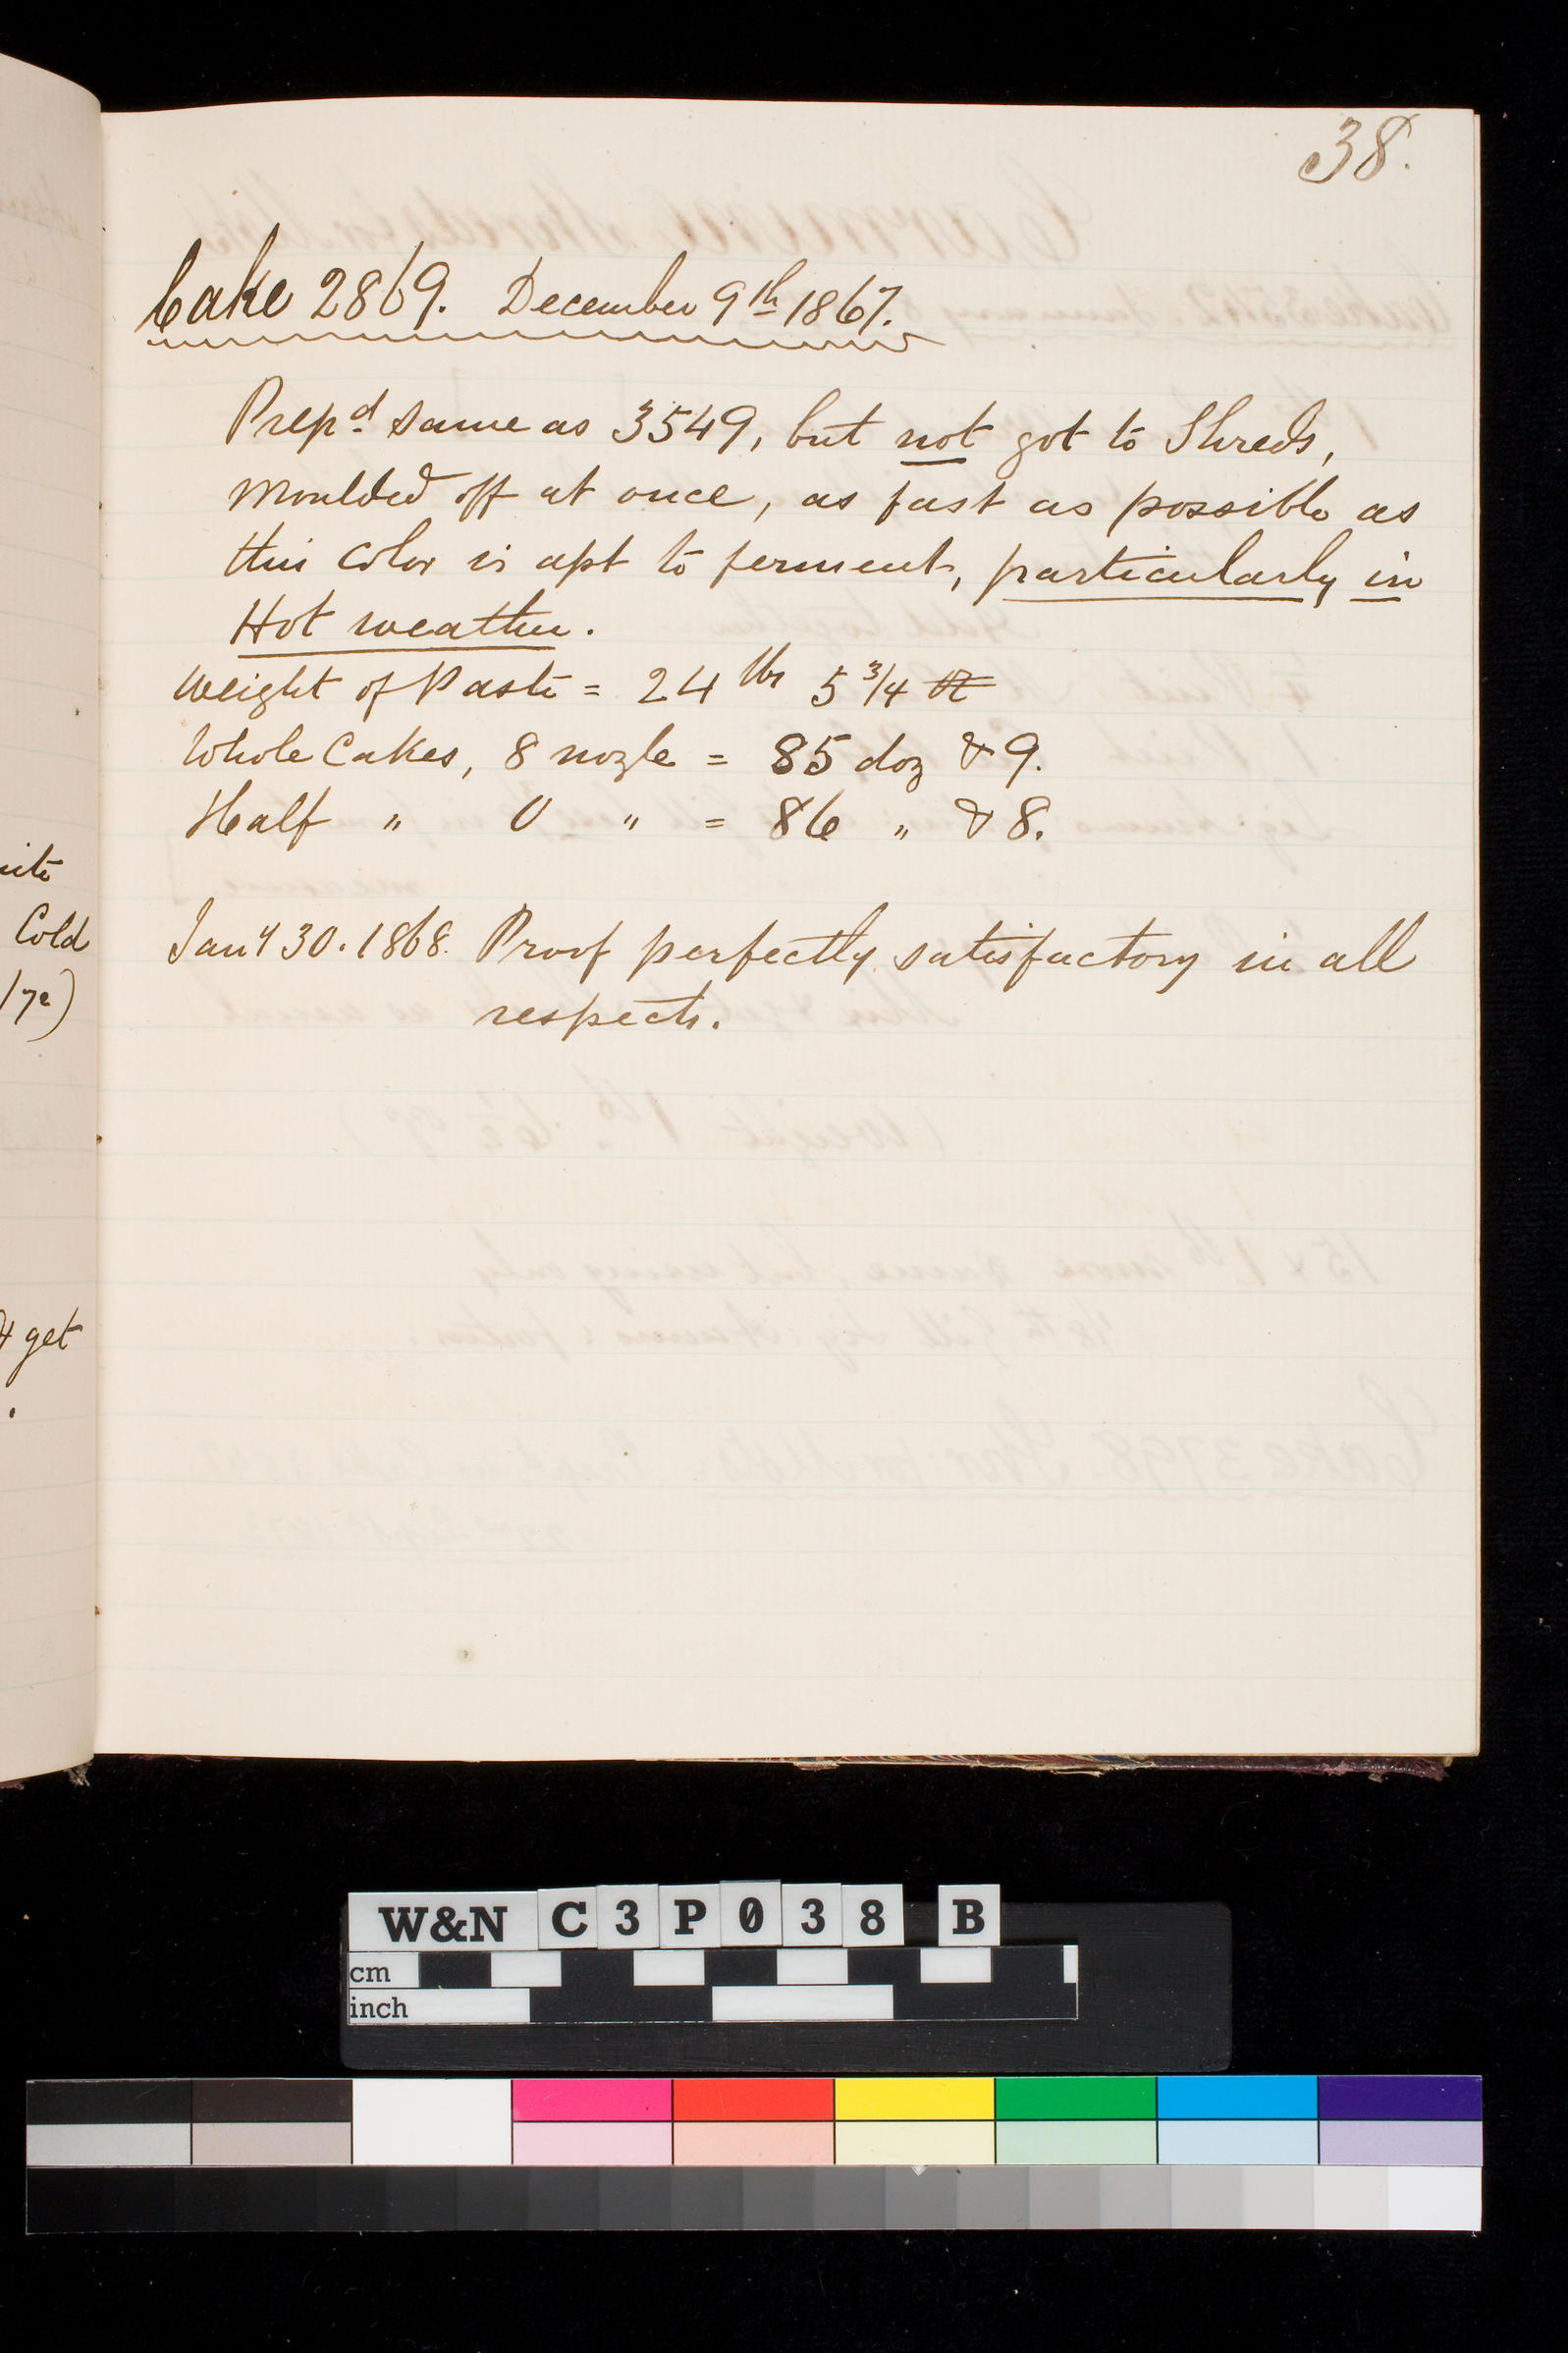 38.
Cake 2869. December 9th 1867.
Prepd same as 3549, but not got to Shreds,
moulded off at once, as fast as possible as
this color is apt to ferment, particularly in
Hot weather.
Weight of Paste = 24 lbs 5 3/4
Whole Cakes, 8 nozle = 85 doz & 9.
Half " 0 " = 86 " & 8.
Jany 30. 1868. Proof perfectly satisfactory in all
respects.
Cold
get
W&N C3P038 B
cm
inch